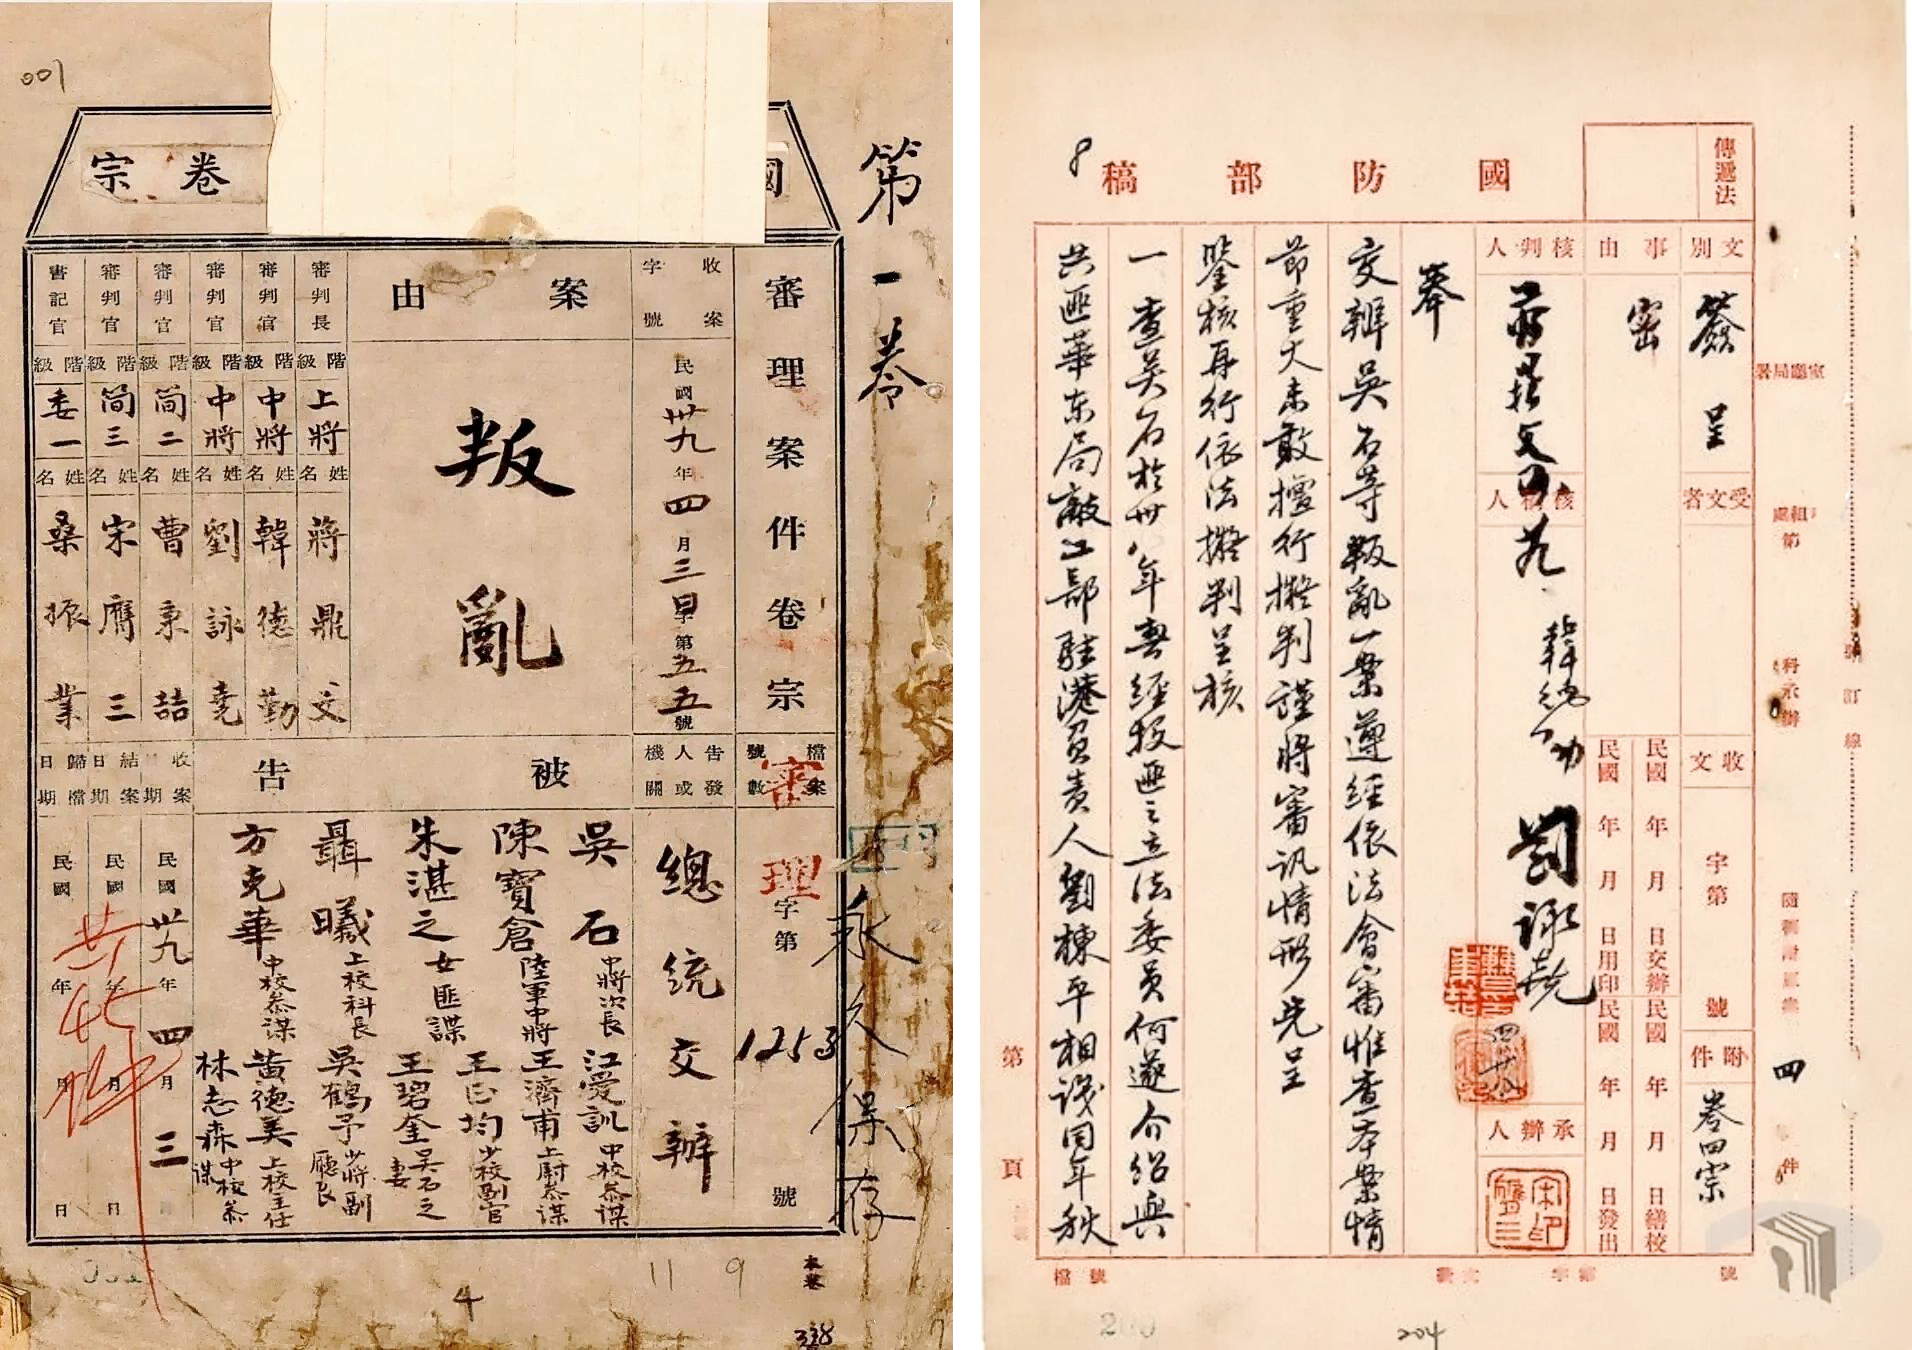 001
第一卷
國
卷宗
審理案件卷宗
檔案號數
審理字第1253號
收案字號
民國卅九年四月三日第五五號
告發人或機關
總統交辦
案由
叛亂
被告
吳石 中將次長
陳寶倉 陸軍中將
朱湛之 女匪諜
聶曦 上校科長
方克華 中校參謀
江愛訓 中校參謀
王濟甫 上尉參謀
王正均 少校副官
王碧奎 吳石之妻
吳鶴予 少將副廳長
黃德美 上校主任
林志森 中校參謀
審判長 階級 上將 姓名 蔣鼎文
審判官 階級 中將 姓名 韓德勤
審判官 階級 中將 姓名 劉詠堯
審判官 階級 簡二 姓名 曹秉喆
審判官 階級 簡三 姓名 宋膺三
書記官 階級 委一 姓名 桑振業
收案日期 民國卅九年四月三日
結案日期 民國 年 月 日
歸檔日期 民國 年 月 日
永久保存
4
11 9
本卷
338
8
國防部稿
傳遞法
文別 簽呈
受文者
收文 字第 號
附件 卷四宗
事由 密
民國 年 月 日交辦
民國 年 月 日繕校
民國 年 月 日用印
民國 年 月 日發出
核判人
蔣鼎文
核稿人
韓德勤
劉詠堯
四廿八
承辦人
宋膺三印
奉
交辦吳石等叛亂一案遵經依法會審惟查本案情
節重大未敢擅行擬判謹將審訊情形先呈
鑒核再行依法擬判呈核
一查吳石於卅八年春經投匪之立法委員何遂介紹與
共匪華東局敵工部駐港負責人劉棟平相識同年秋
第 頁
檔號
室廳局署
組處第
科承辦
訂線
四
件
號
200
204